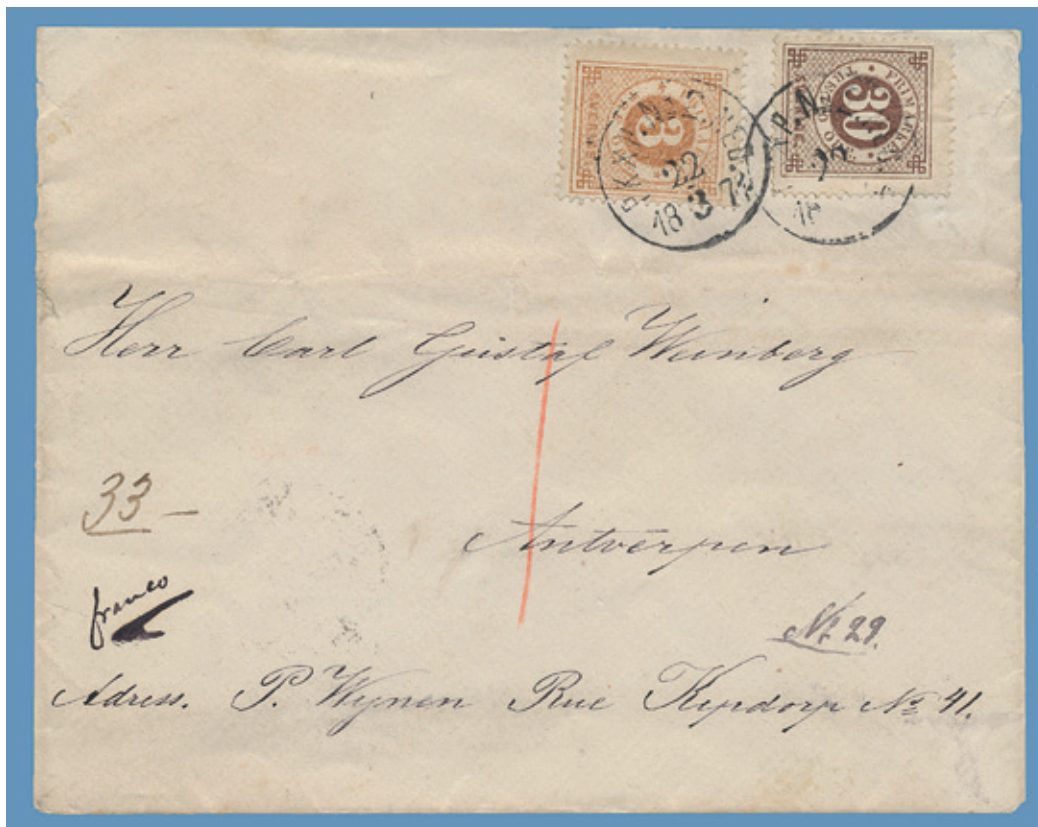 3
30
FRIMÄRKE
22
18 3 7
18
Herr Carl Gustaf Weinberg
33 –
Antverpen
franco
No 29.
Adress. P. Wynen Rue Kipdorp No 41.